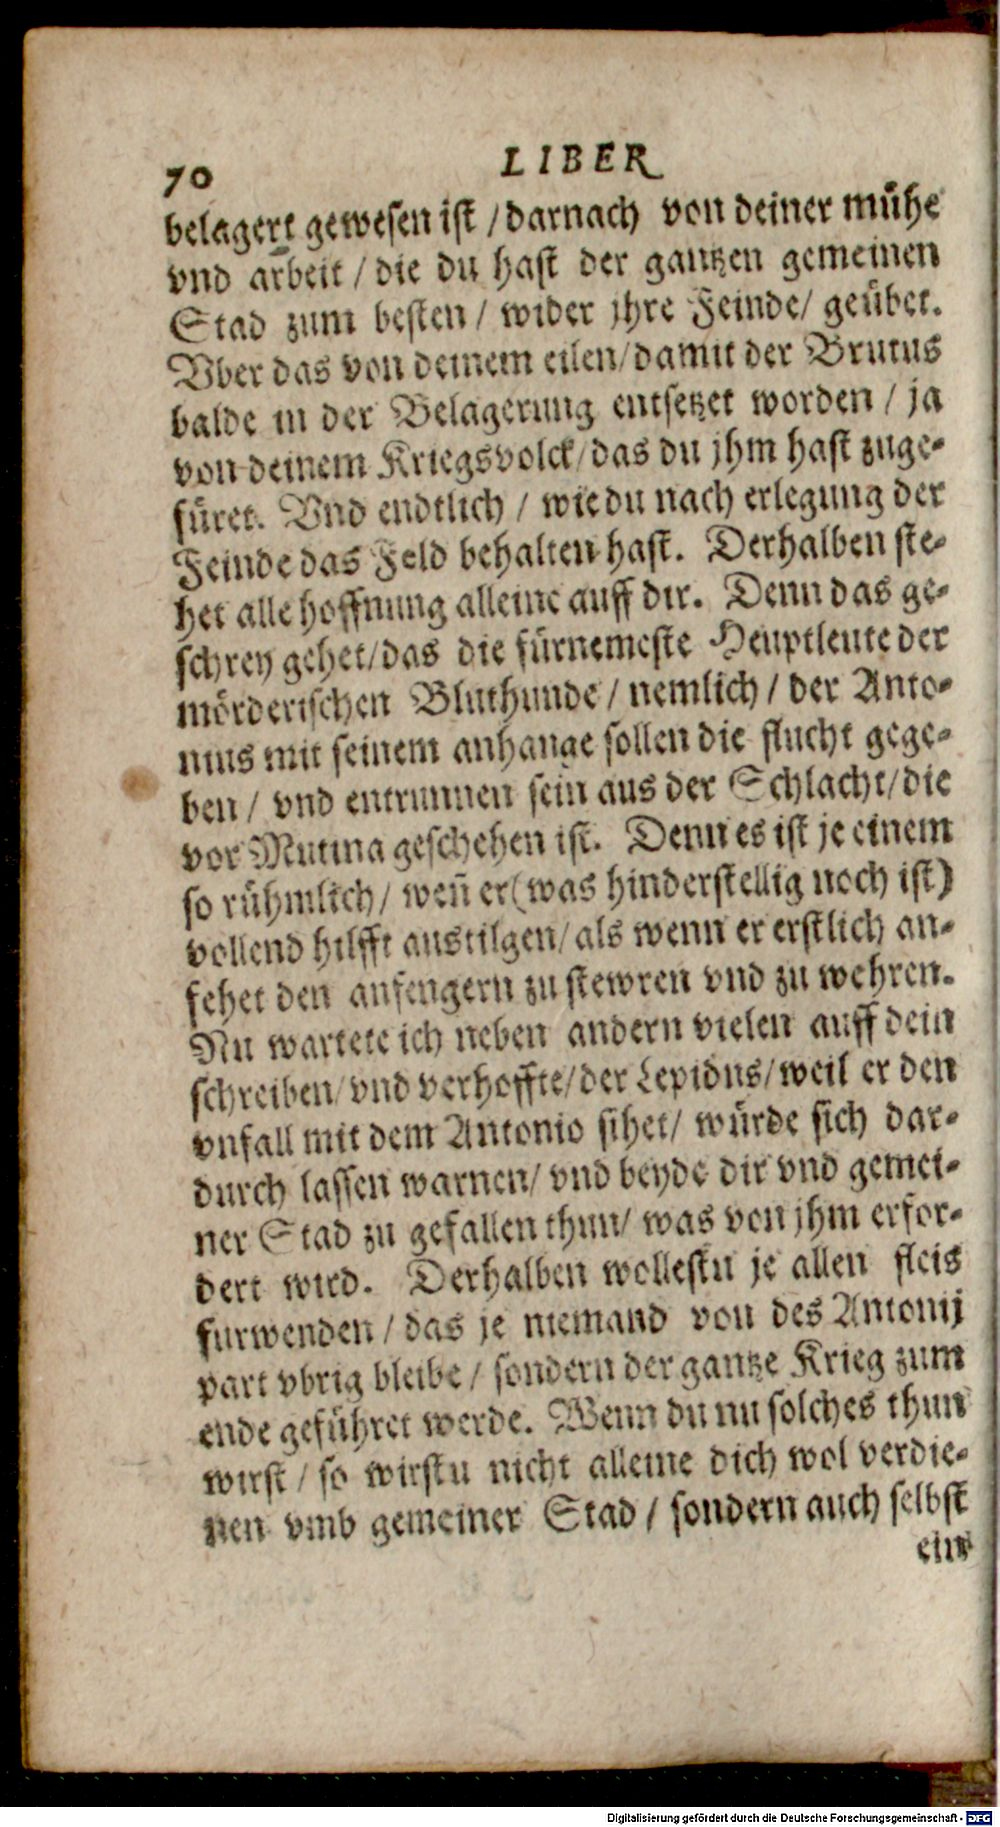 70 LIBER
belagert gewesen ist / darnach von deiner mühe
vnd arbeit / die du hast der gantzen gemeinen
Stad zum besten / wider jhre Feinde / geübet.
Vber das von deinem eilen / damit der Brutus
balde in der Belagerung entsetzet worden / ja
von deinem Kriegsvolck / das du jhm hast zuge-
füret. Vnd endtlich / wie du nach erlegung der
Feinde das Feld behalten hast. Derhalben ste-
het alle hoffnung alleine auff dir. Denn das ge-
schrey gehet / das die fürnemeste Heuptleute der
mörderischen Bluthunde / nemlich / der Anto-
nius mit seinem anhange sollen die flucht gege-
ben / vnd entrunnen sein aus der Schlacht / die
vor Mutina geschehen ist. Denn es ist je einem
so rühmlich / weñ er (was hinderstellig noch ist)
vollend hilfft austilgen / als wenn er erstlich an-
fehet den anfengern zu stewren vnd zu wehren.
Nu wartete ich neben andern vielen auff dein
schreiben / vnd verhoffte / der Lepidus / weil er den
vnfall mit dem Antonio sihet / würde sich dar-
durch lassen warnen / vnd beyde dir vnd gemei-
ner Stad zu gefallen thun / was von jhm erfor-
dert wird. Derhalben wollestu je allen fleis
furwenden / das je niemand von des Antonij
part vbrig bleibe / sondern der gantze Krieg zum
ende geführet werde. Wenn du nu solches thun
wirst / so wirstu nicht alleine dich wol verdie-
nen vmb gemeiner Stad / sondern auch selbst
ein
Digitalisierung gefördert durch die Deutsche Forschungsgemeinschaft - DFG